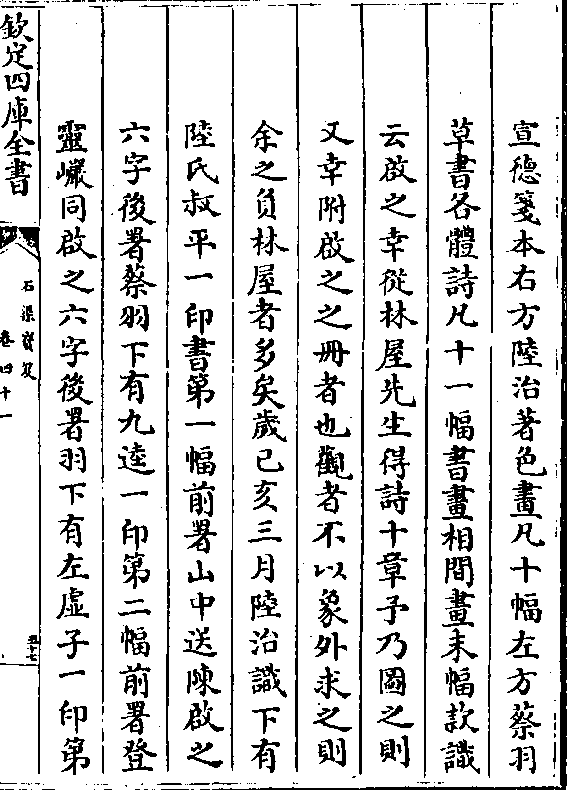 宣德箋本右方陸治著色畫凡十幅左方蔡羽
草書各體詩凡十一幅書畫相間畫末幅款識
云啟之幸從林屋先生得詩十章予乃圖之則
又幸附啟之之冊者也觀者不以象外求之則
余之負林屋者多矣歲己亥三月陸治識下有
陸氏叔平一印書第一幅前署山中送陳啟之
六字後署蔡羽下有九逵一印第二幅前署登
靈巗同啟之六字後署羽下有左虛子一印第
欽定四庫全書
石渠寶笈
卷四十一
五十七